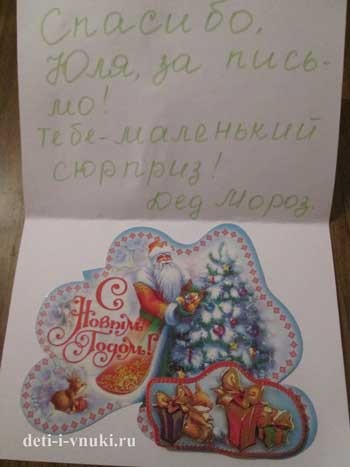 Спасибо,
Юля, за пись-
мо!
тебе-маленький
сюрприз!
Дед Мороз.
С
Новым
Годом!
deti-i-vnuki.ru